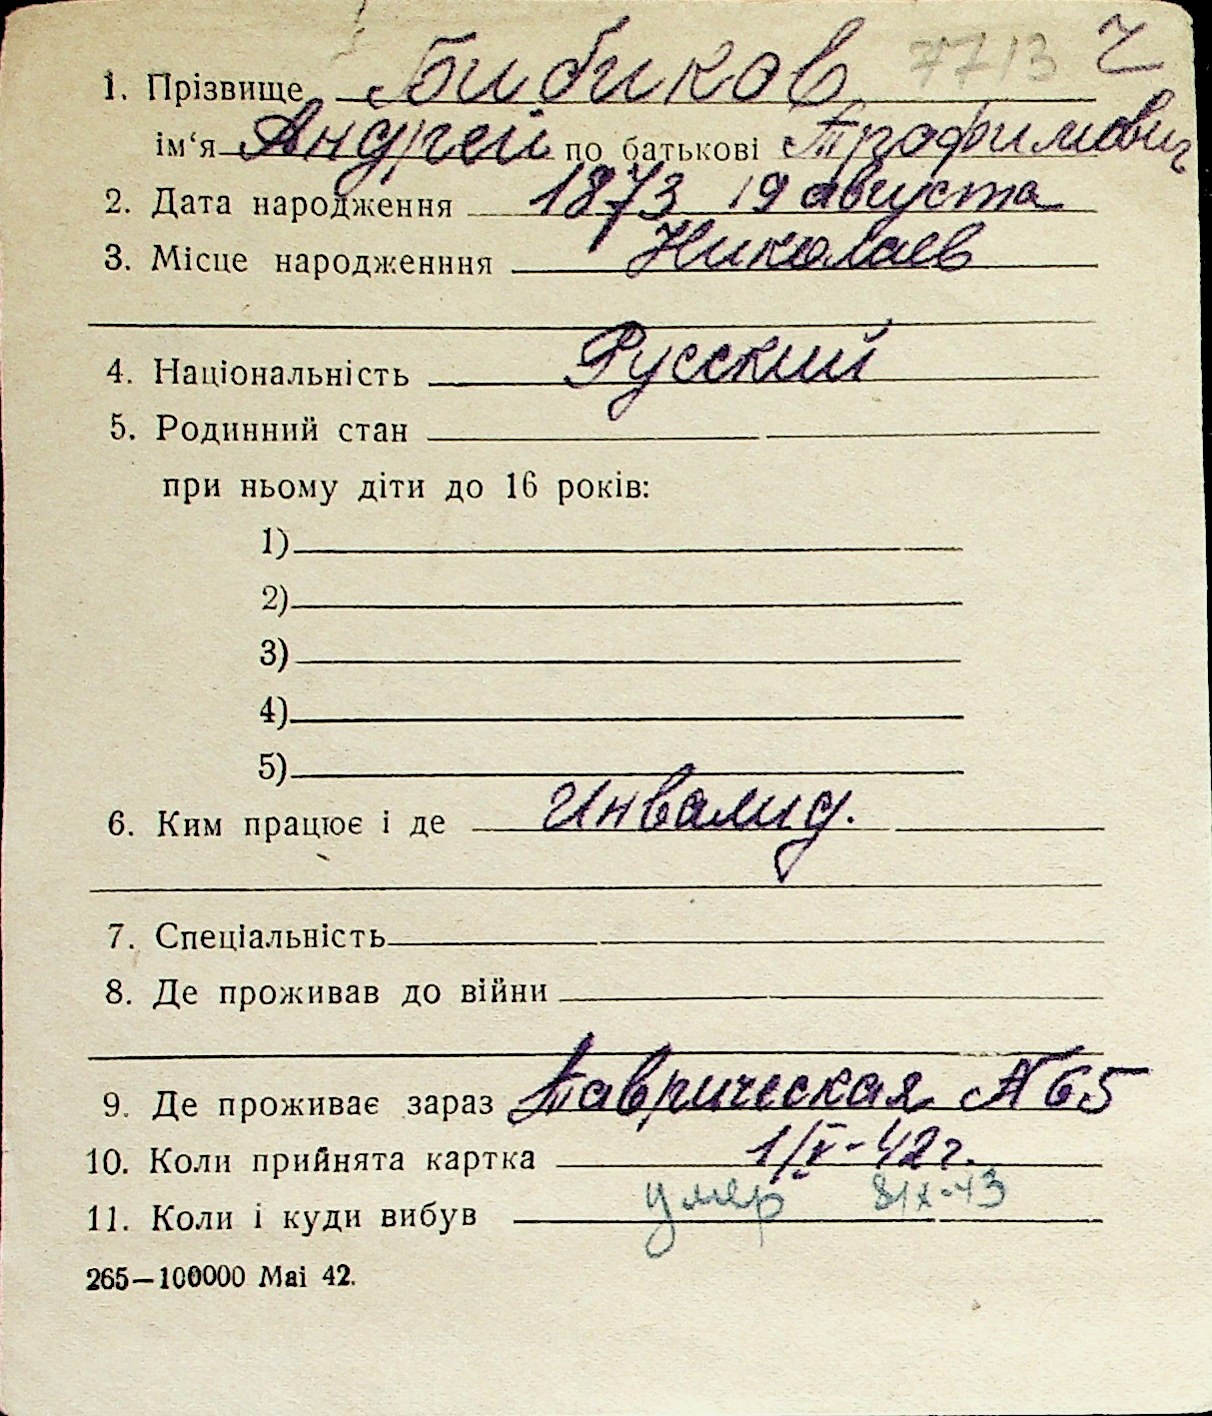 7713 Ч
1. Прізвище Бибиков
ім‘я Андрей по батькові Трофимович
2. Дата народження 1873 19 августа
3. Місце народженння Николаев
4. Національність Русский
5. Родинний стан
при ньому діти до 16 років:
1)
2)
3)
4)
5)
6. Ким працює і де Инвалид.
7. Спеціальність
8. Де проживав до війни
9. Де проживає зараз Таврическая № 65
10. Коли прийнята картка 1/V-42 г.
11. Коли і куди вибув умер 8/IX-43
265—100000 Mai 42.